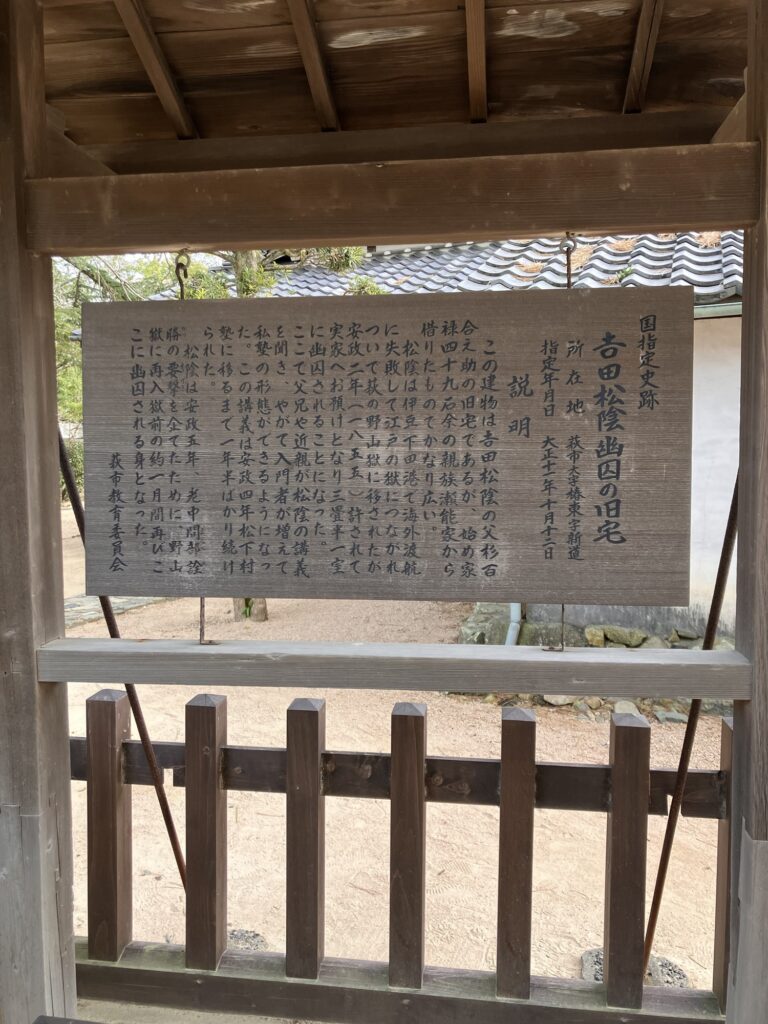 国指定史跡
吉田松陰幽囚の旧宅
所在地 萩市大字椿東字新道
指定年月日 大正十一年十月十二日
説明
この建物は吉田松陰の父杉百
合之助の旧宅であるが、始め家
禄四十九石余の親族瀬能家から
借りたものでかなり広い。
松陰は伊豆下田港で海外渡航
に失敗して江戸の獄につながれ
ついで萩の野山獄に移されたが
安政二年（一八五五）許されて
実家へお預けとなり三畳半一室
に幽囚されることになった。
ここで父兄や近親が松陰の講義
を聞き、やがて入門者が増えて
私塾の形態ができるようになっ
た。この講義は安政四年松下村
塾に移るまで一年半ばかり続け
られた。
松陰は安政五年、老中間部詮
勝の要撃を企てたために、野山
獄に再入獄前の約一月間再びこ
こに幽囚される身となった。
萩市教育委員会